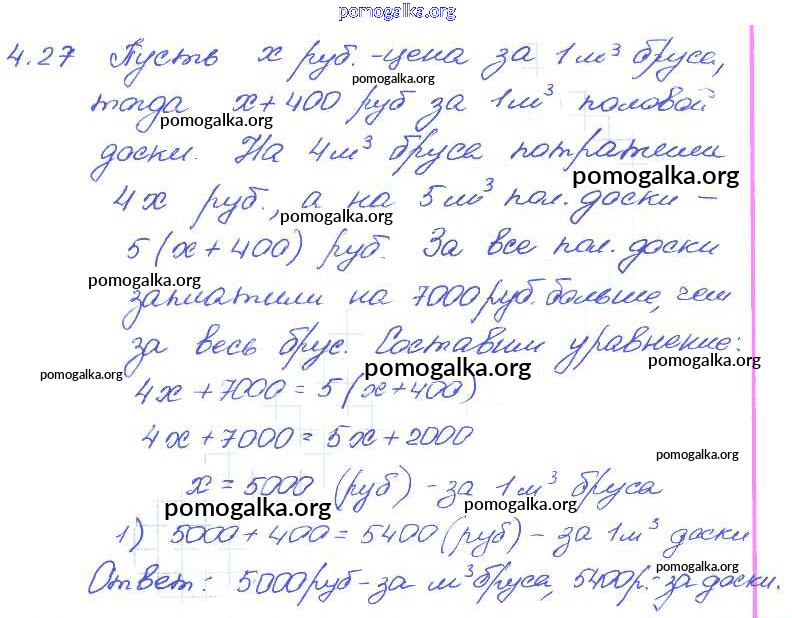 pomogalka.org
4.27 Пусть x руб. - цена за 1 м³ бруса,
pomogalka.org
тогда x + 400 руб за 1 м³ половой
pomogalka.org
доски. На 4 м³ бруса потратили
pomogalka.org
4x руб., а на 5 м³ пол. доски -
pomogalka.org
5(x + 400) руб. За все пол. доски
pomogalka.org
заплатили на 7000 руб. больше, чем
за весь брус. Составим уравнение:
pomogalka.org
pomogalka.org
pomogalka.org
4x + 7000 = 5(x + 400)
4x + 7000 = 5x + 2000
pomogalka.org
x = 5000 (руб) - за 1 м³ бруса
pomogalka.org
pomogalka.org
1) 5000 + 400 = 5400 (руб) - за 1 м³ доски
pomogalka.org
Ответ: 5000 руб - за м³ бруса, 5400 р. - за доски.
pomogalka.org